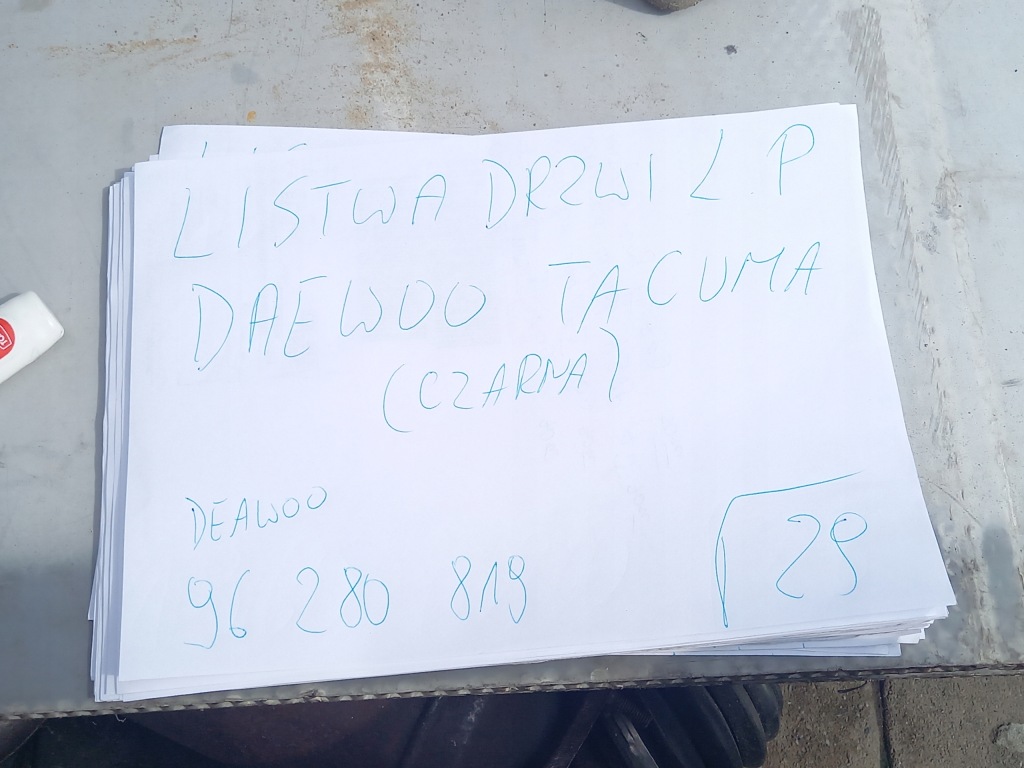 LISTWA DRZWI L.P
DAEWOO TACUMA
(CZARNA)
DEAWOO
96 280 819
29